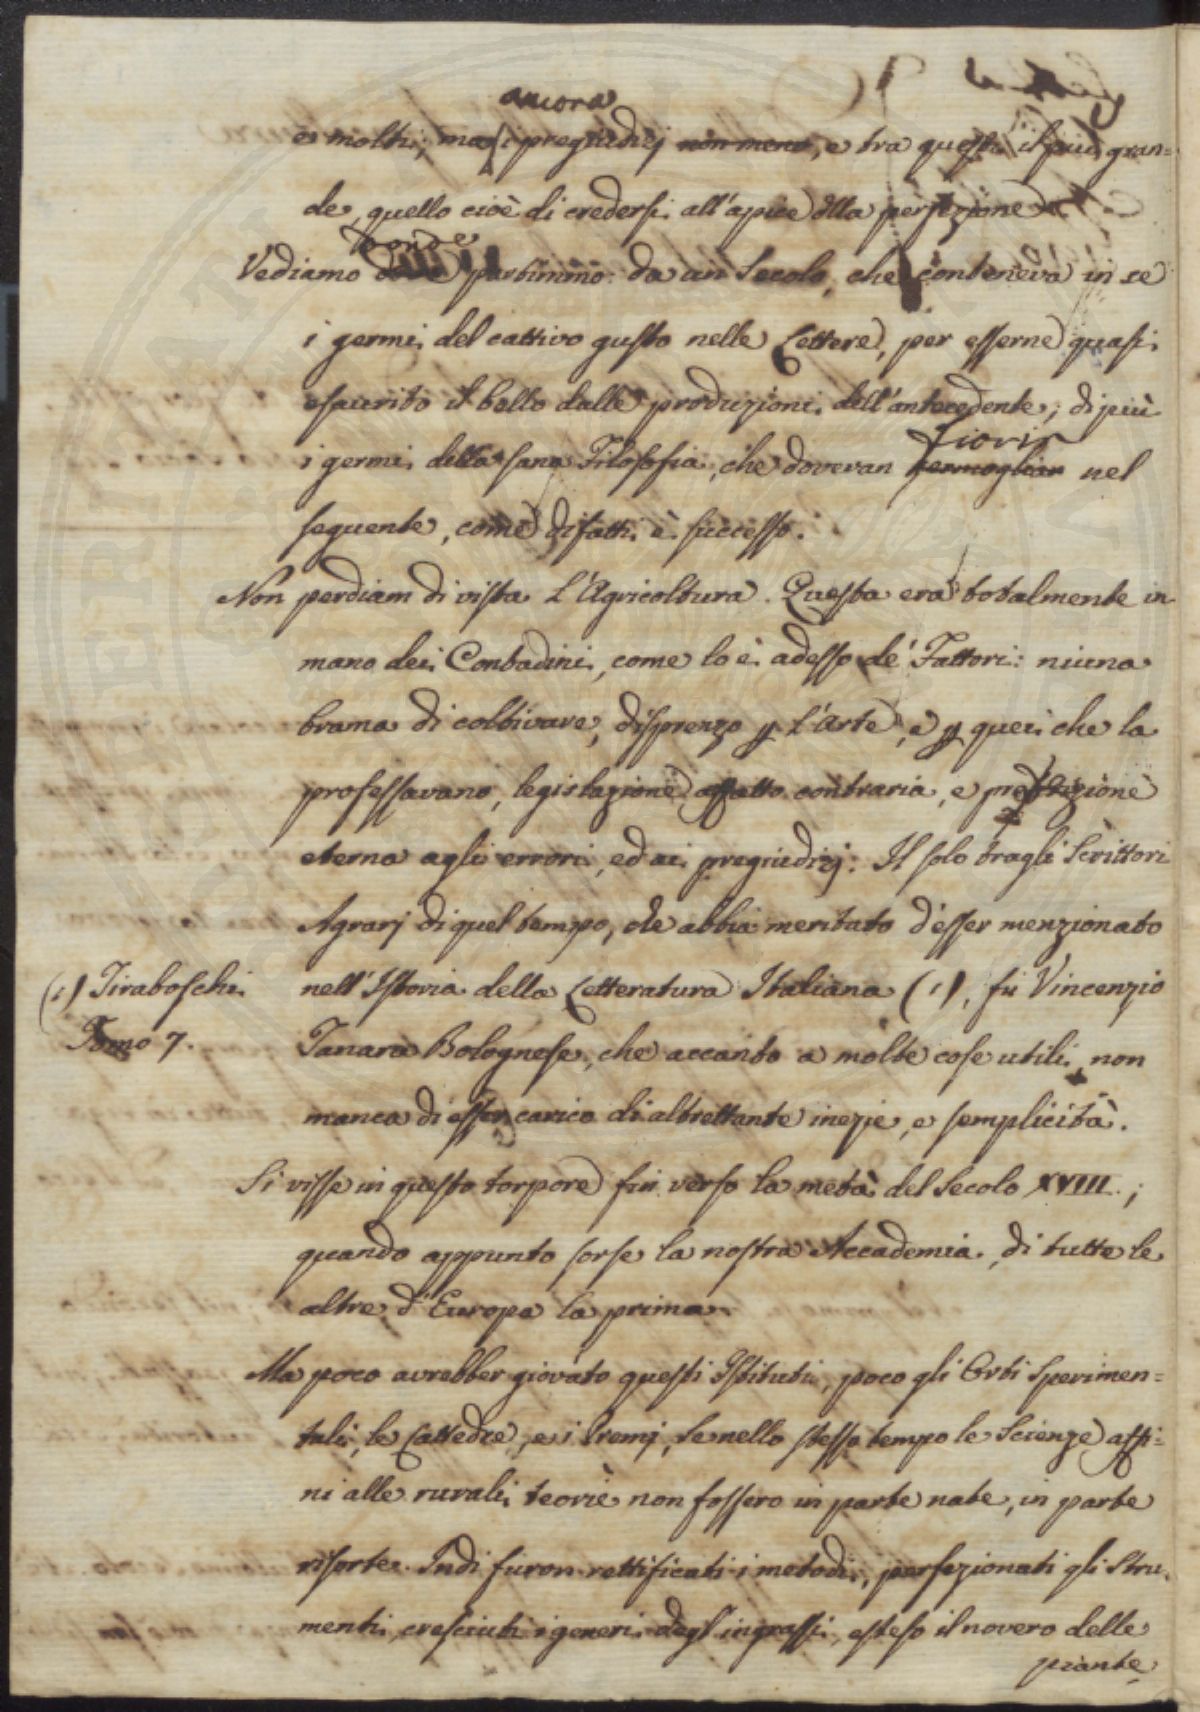 ancora
e molti; ma i pregiudizj non meno, e tra questi il più gran=
de, quello cioè di credersi all'apice dlla perfezione.
donde
Vediamo dove partimmo: da un Secolo, che conteneva in se
i germi del cattivo gusto nelle Lettere, per esserne quasi
esaurito il bello dalle produzioni dell'antecedente; di più
fiorir
i germi della sana Filosofia, che doveran germogliar nel
seguente, come difatti è successo.
Non perdiam di vista l'Agricoltura. Questa era totalmente in
mano dei Contadini, come lo è adesso de' Fattori: niuna
brama di coltivare, disprezzo p l'Arte, e p quei che la
professavano, legislazione affatto contraria, e protezione
eterna agli errori, ed ai pregiudizj. Il solo tragli Scrittori
Agrarj di quel tempo, che abbia meritato d'esser menzionato
(1) Tiraboschi
Tomo 7.
nell'Istoria della Letteratura Italiana (1), fu Vincenzio
Tanara Bolognese, che accanto a molte cose utili, non
manca di esser carico di altrettante inezie, e semplicità.
Si visse in questo torpore fin verso la metà del Secolo XVIII.;
quando appunto sorse la nostra Accademia, di tutte le
altre d'Europa la prima.
Ma poco avrebber giovato questi Istituti, poco gli Orti Sperimen=
tali, le Cattedre, e i Premj, se nello stesso tempo le Scienze affi=
ni alle rurali teorie non fossero in parte nate, in parte
risorte. Indi furon rettificati i metodi, perfezionati gli Stru=
menti, cresciuti i generi degl'ingrassi, esteso il novero delle
piante